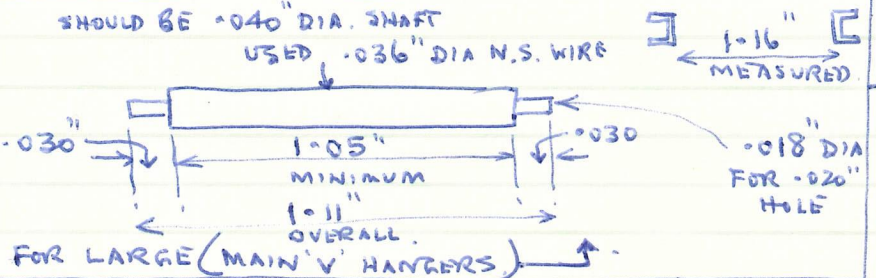 SHOULD BE .040" DIA. SHAFT
USED .036" DIA N.S. WIRE
1.16"
MEASURED.
.030"
1.05"
MINIMUM
.030
.018" DIA
FOR .020"
HOLE
1.11"
OVERALL.
FOR LARGE (MAIN 'V' HANGERS.)